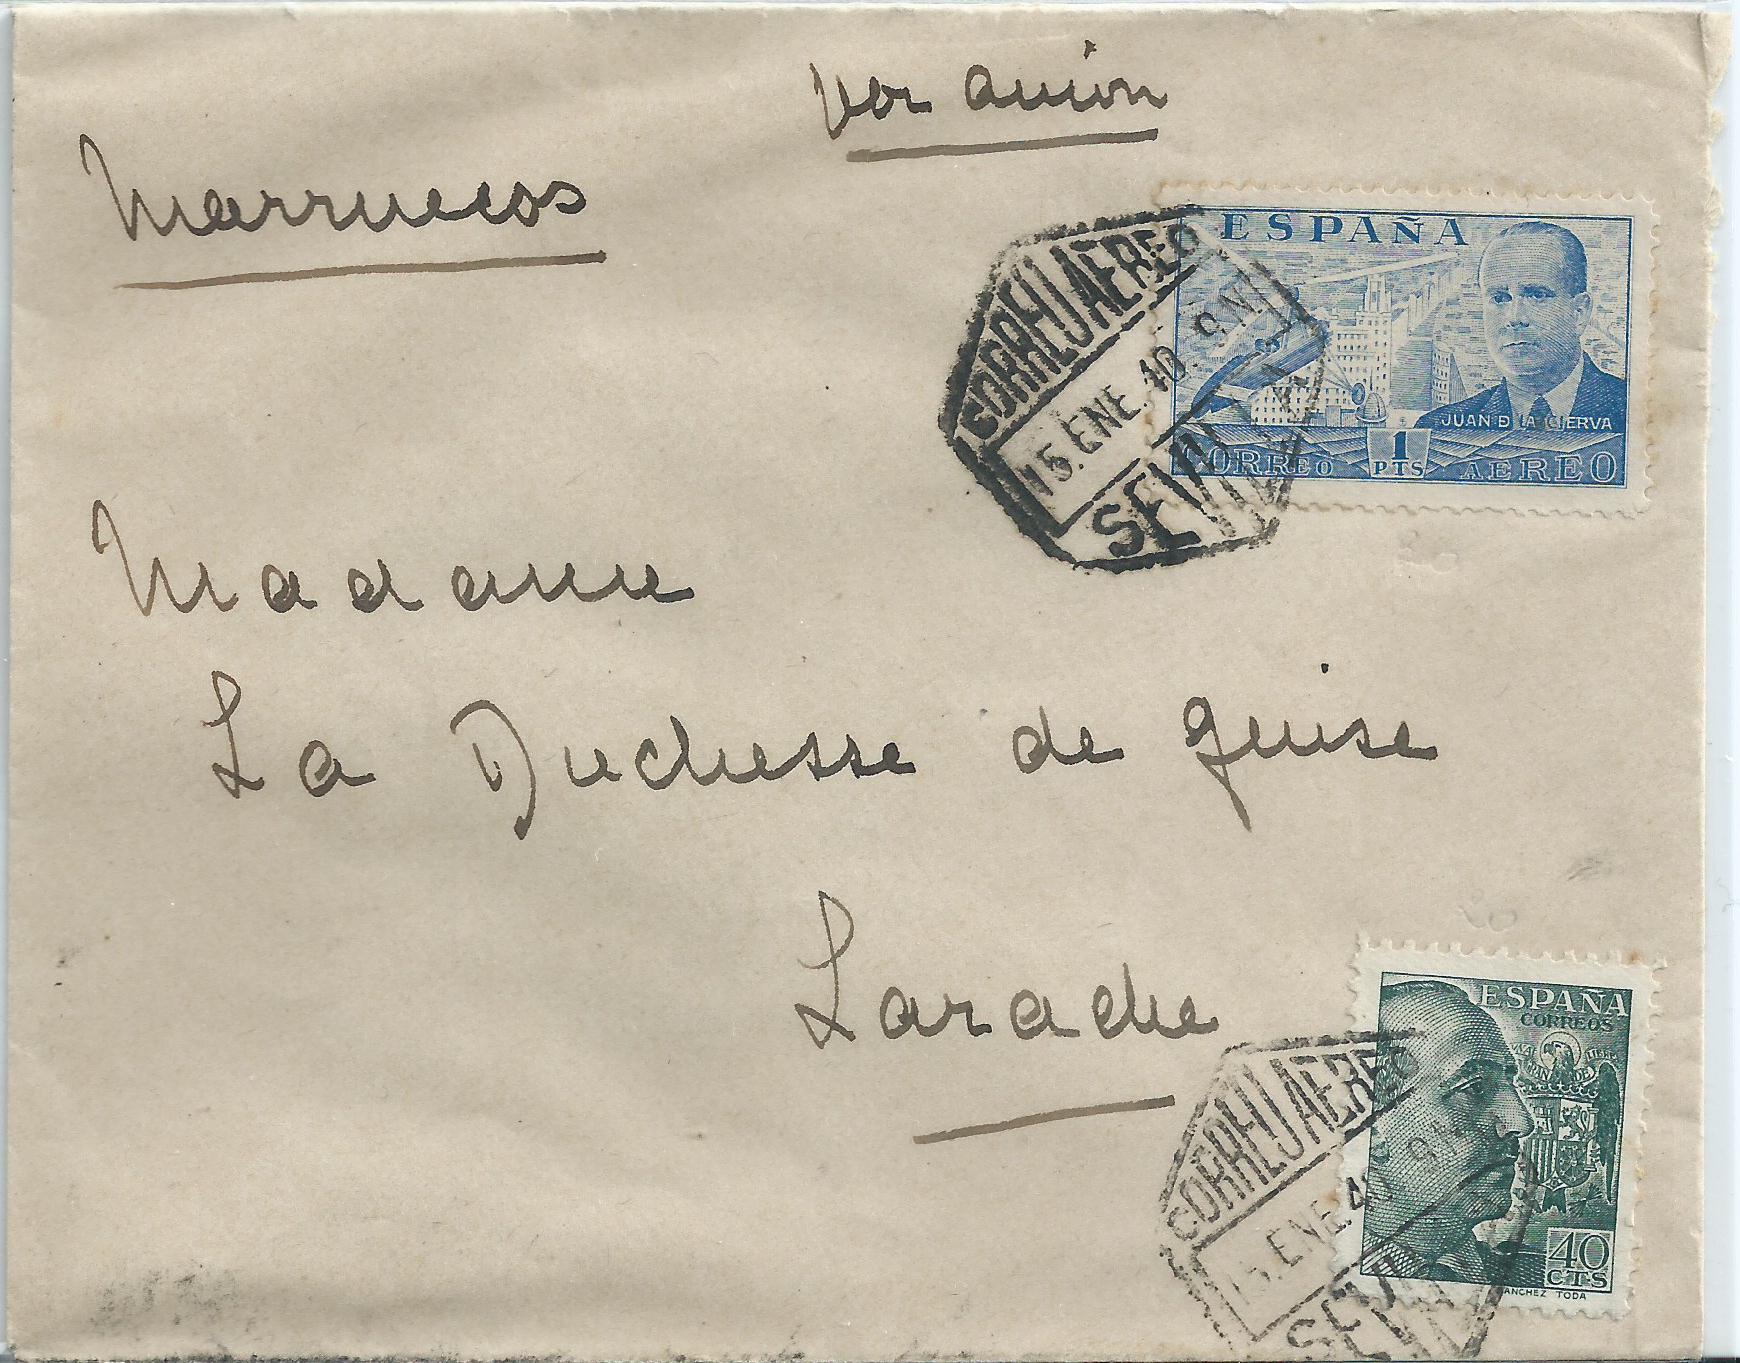 Por avión
Marruecos
ESPAÑA
JUAN DE LA CIERVA
1
PTS
CORREO AEREO
CORREO AEREO
15.ENE.40. 9N
SEVILLA
Madame
La Duchesse de Guise
Larache
ESPAÑA
CORREOS
40
CTS
SANCHEZ TODA
CORREO AEREO
15.ENE.40 9N
SEVILLA